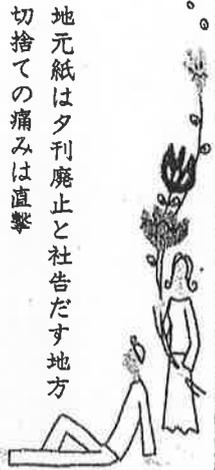 地元紙は夕刊廃止と社告だす地方
切捨ての痛みは直撃